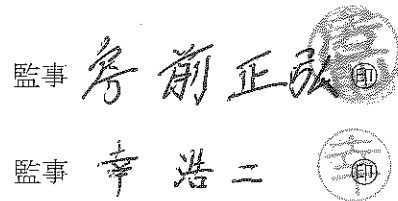 監事 房前正弘 印
監事 幸浩二 印